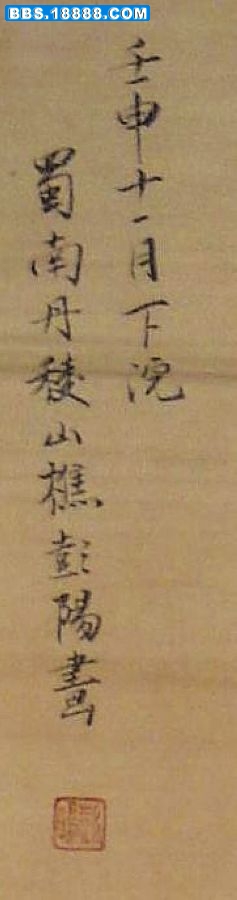 BBS.18888.COM
壬申十一月下浣
蜀南丹稜山樵彭陽畫